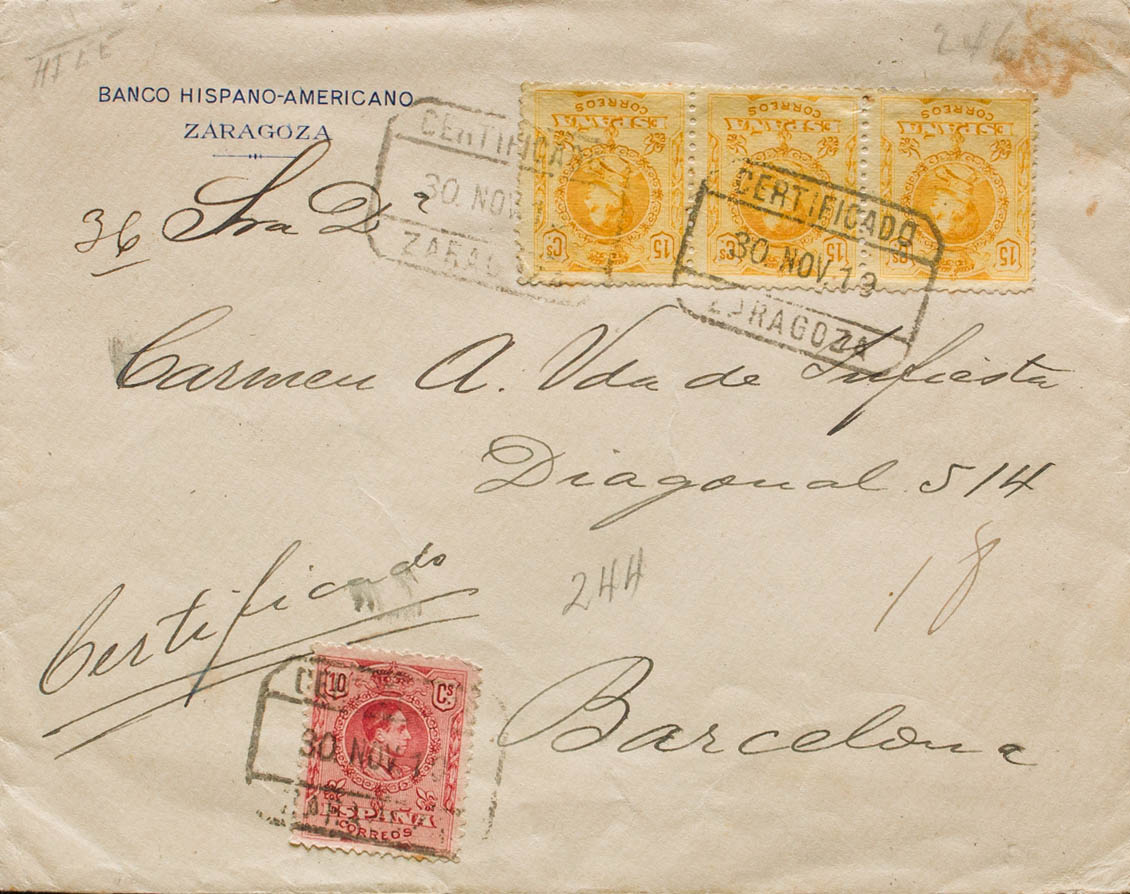 HILE
246
BANCO HISPANO-AMERICANO
ZARAGOZA
CORREOS
ESPAÑA
15 Cs
CORREOS
ESPAÑA
15 Cs
CORREOS
ESPAÑA
15 Cs
CERTIFICADO
30 NOV. 1
ZARAGOZA
CERTIFICADO
30 NOV. 19
ZARAGOZA
36 Sra Dª
Carmen A. Vda de Infiesta
Diagonal 514
18
244
Certificado
Barcelona
10 Cs
ESPAÑA
CORREOS
30 NOV. 1